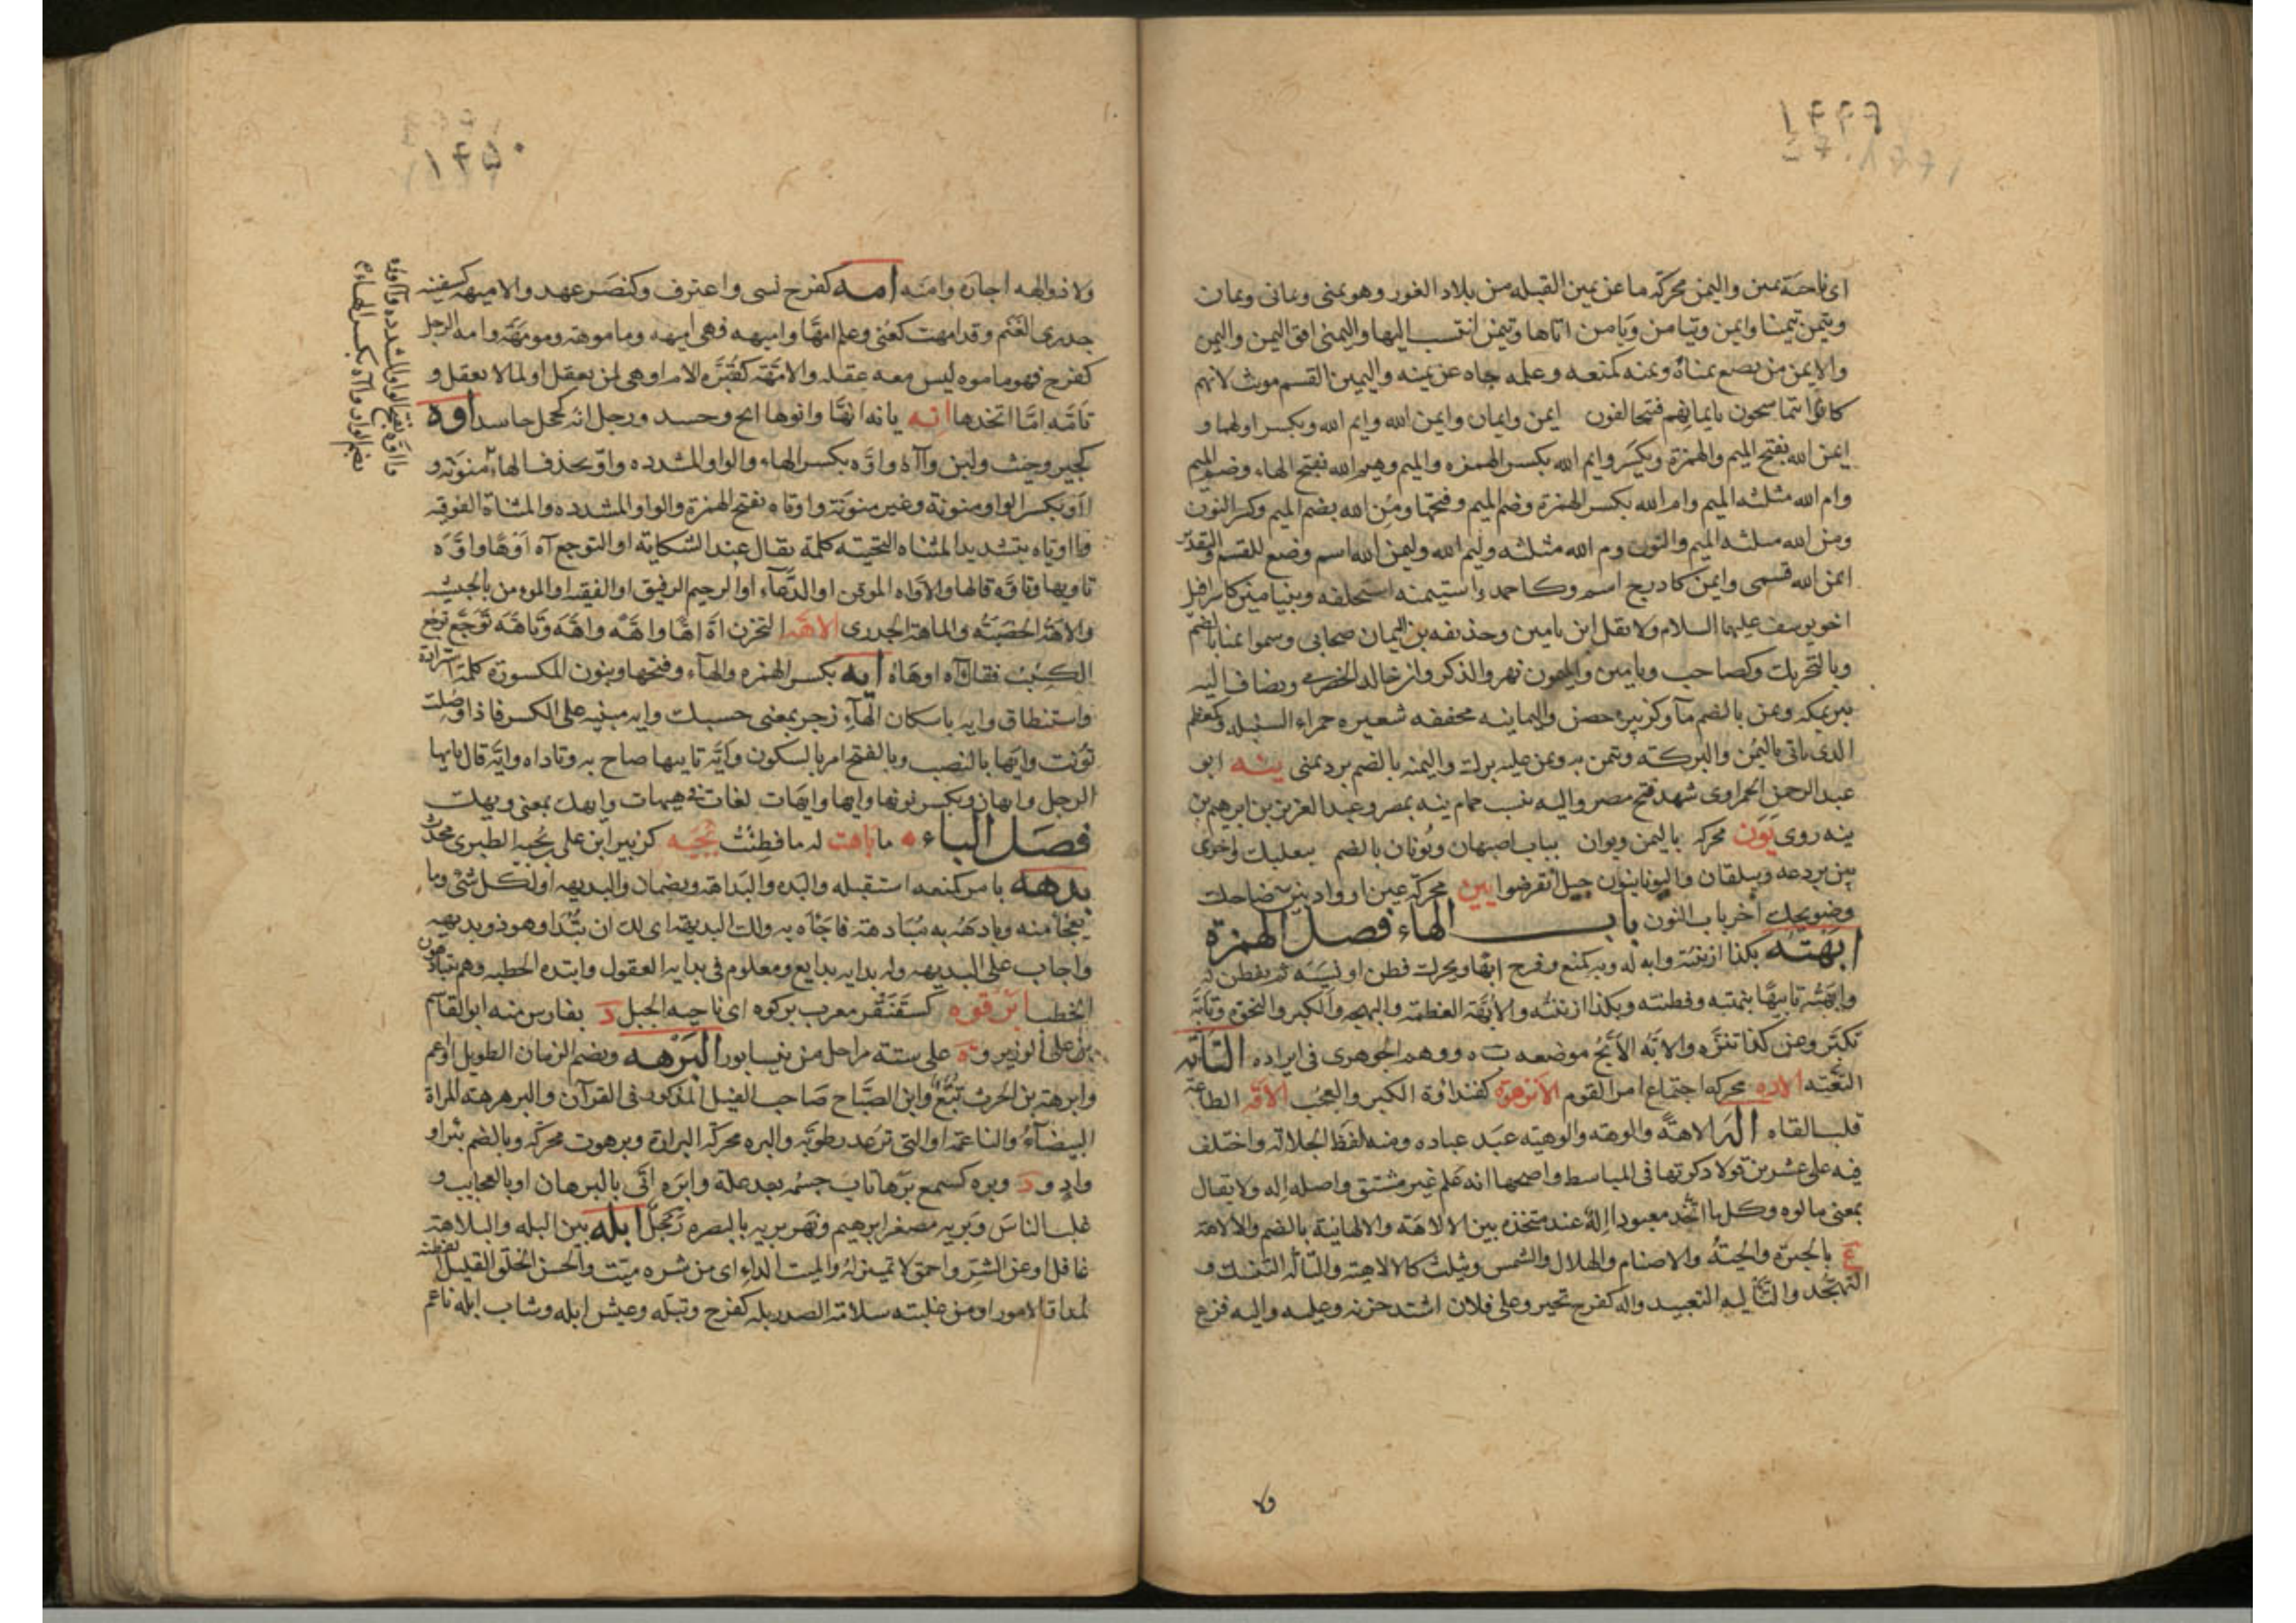 ۱۴۴۹
ای ناحیة یمین والیمن محرکه ما عن یمین القبله من بلاد الغور وهو یمنی ویمانی ویمان
وتیمن تیمنا وایمن وتیامن ویامن اتاها وتیمن انتسب الیها والیمنی افق الیمن والیمن
والایمن من یصنع بیمناه ویمنه کمنعه وعلمه جاه عن یمینه والیمین القسم مونث لانهم
کانوا یتماسحون بایمانهم فیتحالفون ایمن وایمان وایمن الله وایم الله ویکسر اولهما و
ایمن الله بفتح المیم والهمزة ویکسر وایم الله بکسر الهمزه والمیم وهیم الله بفتح الهاء وضم المیم
وام الله مثلثه المیم وام الله بکسر الهمزة وضم المیم وفتحها ومن الله بضم المیم وکسر النون
ومن الله مثلثه المیم والنون وم الله مثلثه ولیم الله ولیمن الله اسم وضع للقسم والتقدیر
ایمن الله قسمی وایمن کاذرح اسم وکاحمد واستیمنه استحلفه وبنیامین کاسرافیل
اخو یوسف علیهما السلام ولا تقل ابن یامین وحذیفه بن الیمان صحابی وسموا یمنا بالضم
وبالتحریک وکصاحب ویامین والمیمون نهر والذکر وابن خالد الحضرمی ویضاف الیه
بیر بمکه ویمن بالضم ماء وکزبیر حصن والیمانیه مخففه شعیره حمراء السنبله وکمعظم
الذی یاتی بالیمن والبرکة وتیمن به ویمن علیه برک والیمنه بالضم برد یمنی ینه ابو
عبد الرحمن الحمراوی شهد فتح مصر والیه ینسب حمام ینه بمصر وعبد العزیز بن ابرهیم بن
ینه روی یون محرکه بالیمن ویوان بباب اصبهان ویونان بالضم ببعلبک واخری
بین بردعه وبیلقان والیونانیون جیل انقرضوا یین محرکه عین او واد بین ضاحک
وضویحک اخر باب النون باب الهاء فصل الهمزة
ابهته بکذا ازننته وابه له وبه کمنع وفرح ابها ویحرک فطن او نسیه ثم یفطن له
وابهته تابیها نبهته وفطنته وبکذا ازننته والابهة العظمة والبهجه والکبر والنخوة وتابه
تکبر وعن کذا تنزه والابه الابح موضعه ب ه ووهم الجوهری فی ایراده التاته
التعته الاده محرکه اجتماع امر القوم الانزهوة کفنداوة الکبر والعجب الاقه الطاعة
قلب القاه اله الاهة والوهة والوهیه عبد عباده ومنه لفظ الجلالة واختلف
فیه علی عشرین قولا ذکرتها فی المباسط واصحها انه علم غیر مشتق واصله اله ولا یقال
بمعنی مالوه وکل ما اتخذ معبودا اله عند متخذه بین الالاهة والالهانیة بالضم والالاهة
ع بالجیزة والحیة والاصنام والهلال والشمس ویثلث کالالاهة والتاله التنسک و
التهجد والتالیه التعبید واله کفرح تحیر وعلی فلان اشتد جزعه وعلیه والیه فزع
ولا
۱۴۵۰
ولاذ والهه اجاره وامنه امه کفرح نسی واعترف وکنصر عهد والامیهه کسفینه
جدری الغنم وقد امهت کعنی وعلم امها وامیهه فهی امیهه وماموهة ومومهة وامه الرجل
کفرح فهو ماموه لیس معه عقله والامهة کقبره الام او هی لمن یعقل والام لما لا یعقل و
تامه اما اتخذها انه یانه انها وانوها انح وحسد ورجل انه کخجل حاسد اوه
کجیر وحیث واین وآه واوه بکسر الهاء والواو المشدده واو بحذف الهاء منونة و
اآو بکسر الواو منونة وغیر منونة واوتاه بفتح الهمزة والواو المشدده والمثناة الفوقیه
وااویاه بتشدید المثناه التحتیه کلمة یقال عند الشکایة او التوجع آه اوها واوه
تاویها وتاوه قالها والاواه الموقن او الدعاء او الرحیم الرفیق او الفقیه او المومن بالحبشیه
والاهة الحصبة والماهة الجدری الاهه التحزن اه اها واهه واهه وتاهه توجع توجع
الکئیب فقال آه او هاه ایه بکسر الهمزه والهاء وفتحها وینون المکسورة کلمة استزادة
واستنطاق وایه باسکان الهاء زجر بمعنی حسبک وایه مبنیه علی الکسر فاذا وصلت
نونت وایها بالنصب وبالفتح امر بالسکون وایه تاییها صاح به وناداه وایه قال یا ایها
الرجل وایهان ویکسر نونها وایها وایهات لغات فی هیهات وایهک بمعنی ویهک
فصل الباء ما بابهت له ما فطنت بجیه کزبیر ابن علی بن بجیه الطبری محدث
بدهه بامر کمنعه استقبله والبده والبداهة ویضمان والبدیهه اول کل شی وما
یفجا منه وبادهه به مبادهة فاجاه به ولک البدیهة ای لک ان تبدا وهو ذو بدیهه
واجاب علی البدیهه وله بدایه بدایع ومعلوم فی بدایه العقول وابتده الخطبه وهم یتبادهون
الخطب ابرقوه کسقنقر معرب برکوه ای ناحیه الجبل د بفارس منه ابو القاسم
بن علی الوزیر وه علی ستة مراحل من نیسابور البرهه ویضم الزمان الطویل او اعم
وابرهة بن الحرث تبع وابن الصباح صاحب الفیل المذکور فی القرآن والبرهرهة المراة
البیضاء والناعمة او التی ترعد رطوبه والبره محرکه البرارة وبرهوت محرکه وبالضم بئر او
واد و د وبره کسمع برها ثاب جسمه بعد علة وابره اتی بالبرهان او بالعجایب و
غلب الناس وبریه مصغر ابرهیم ونهر بریه بالبصره رجل ابله بین البله والبلاهة
غافل او عن الشر واحمق لا تمییز له والمیت الداء ای من شره میت والحسن الخلق القلیل الفطنة
لمداق الامور او من غلبته سلامة الصدر بله کفرح وتبله وعیش ابله وشاب ابله ناعم
وااوه بفتح الواو المشدده وآاووه
بضم الواو وآاه بکسر الهاء